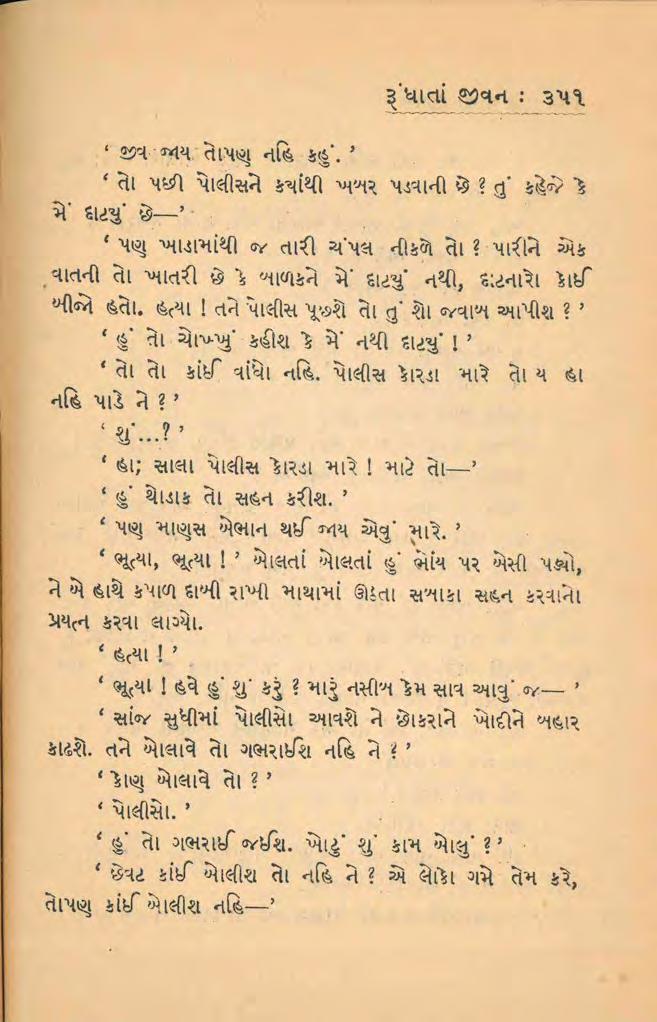 રૂંધાતાં જીવન : ૩૫૧
‘ જીવ જાય તોપણ નહિ કહું. ’
‘ તો પછી પોલીસને ક્યાંથી ખબર પડવાની છે ? તું કહેજે કે
મેં દાટ્યું છે—’
‘ પણ ખાડામાંથી જ તારી ચંપલ નીકળે તો ? પારીને એક
વાતની તો ખાતરી છે કે બાળકને મેં દાટ્યું નથી, દાટનારો કોઈ
બીજો હતો. હત્યા ! તને પોલીસ પૂછશે તો તું શો જવાબ આપીશ ? ’
‘ હું તો ચોખ્ખું કહીશ કે મેં નથી દાટ્યું ! ’
‘ તો તો કાંઈ વાંધો નહિ. પોલીસ કોરડા મારે તો ય હા
નહિ પાડે ને ? ’
‘ શું...? ’
‘ હા; સાલા પોલીસ કોરડા મારે ! માટે તો—’
‘ હું થોડાક તો સહન કરીશ. ’
‘ પણ માણસ બેભાન થઈ જાય એવું મારે. ’
‘ ભૂત્યા, ભૂત્યા ! ’ બોલતાં બોલતાં હું ભોંય પર બેસી પડ્યો,
ને બે હાથે કપાળ દાબી રાખી માથામાં ઊઠતા સબાકા સહન કરવાનો
પ્રયત્ન કરવા લાગ્યો.
‘ હત્યા ! ’
‘ ભૂત્યા ! હવે હું શું કરું ? મારું નસીબ કેમ સાવ આવું જ— ’
‘ સાંજ સુધીમાં પોલીસો આવશે ને છોકરાને ખોદીને બહાર
કાઢશે. તને બોલાવે તો ગભરાઈશ નહિ ને ? ’
‘ કોણ બોલાવે તો ? ’
‘ પોલીસો. ’
‘ હું તો ગભરાઈ જઈશ. ખોટું શું કામ બોલું ? ’
‘ છેવટ કાંઈ બોલીશ તો નહિ ને ? એ લોકો ગમે તેમ કરે,
તોપણ કાંઈ બોલીશ નહિ—’